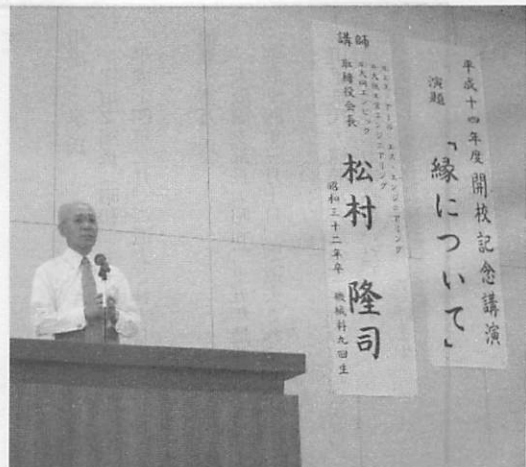 平成十四年度開校記念講演
演題
「縁について」
講師
取締役会長
松村 隆司
昭和三十二年卒 機械科九回生